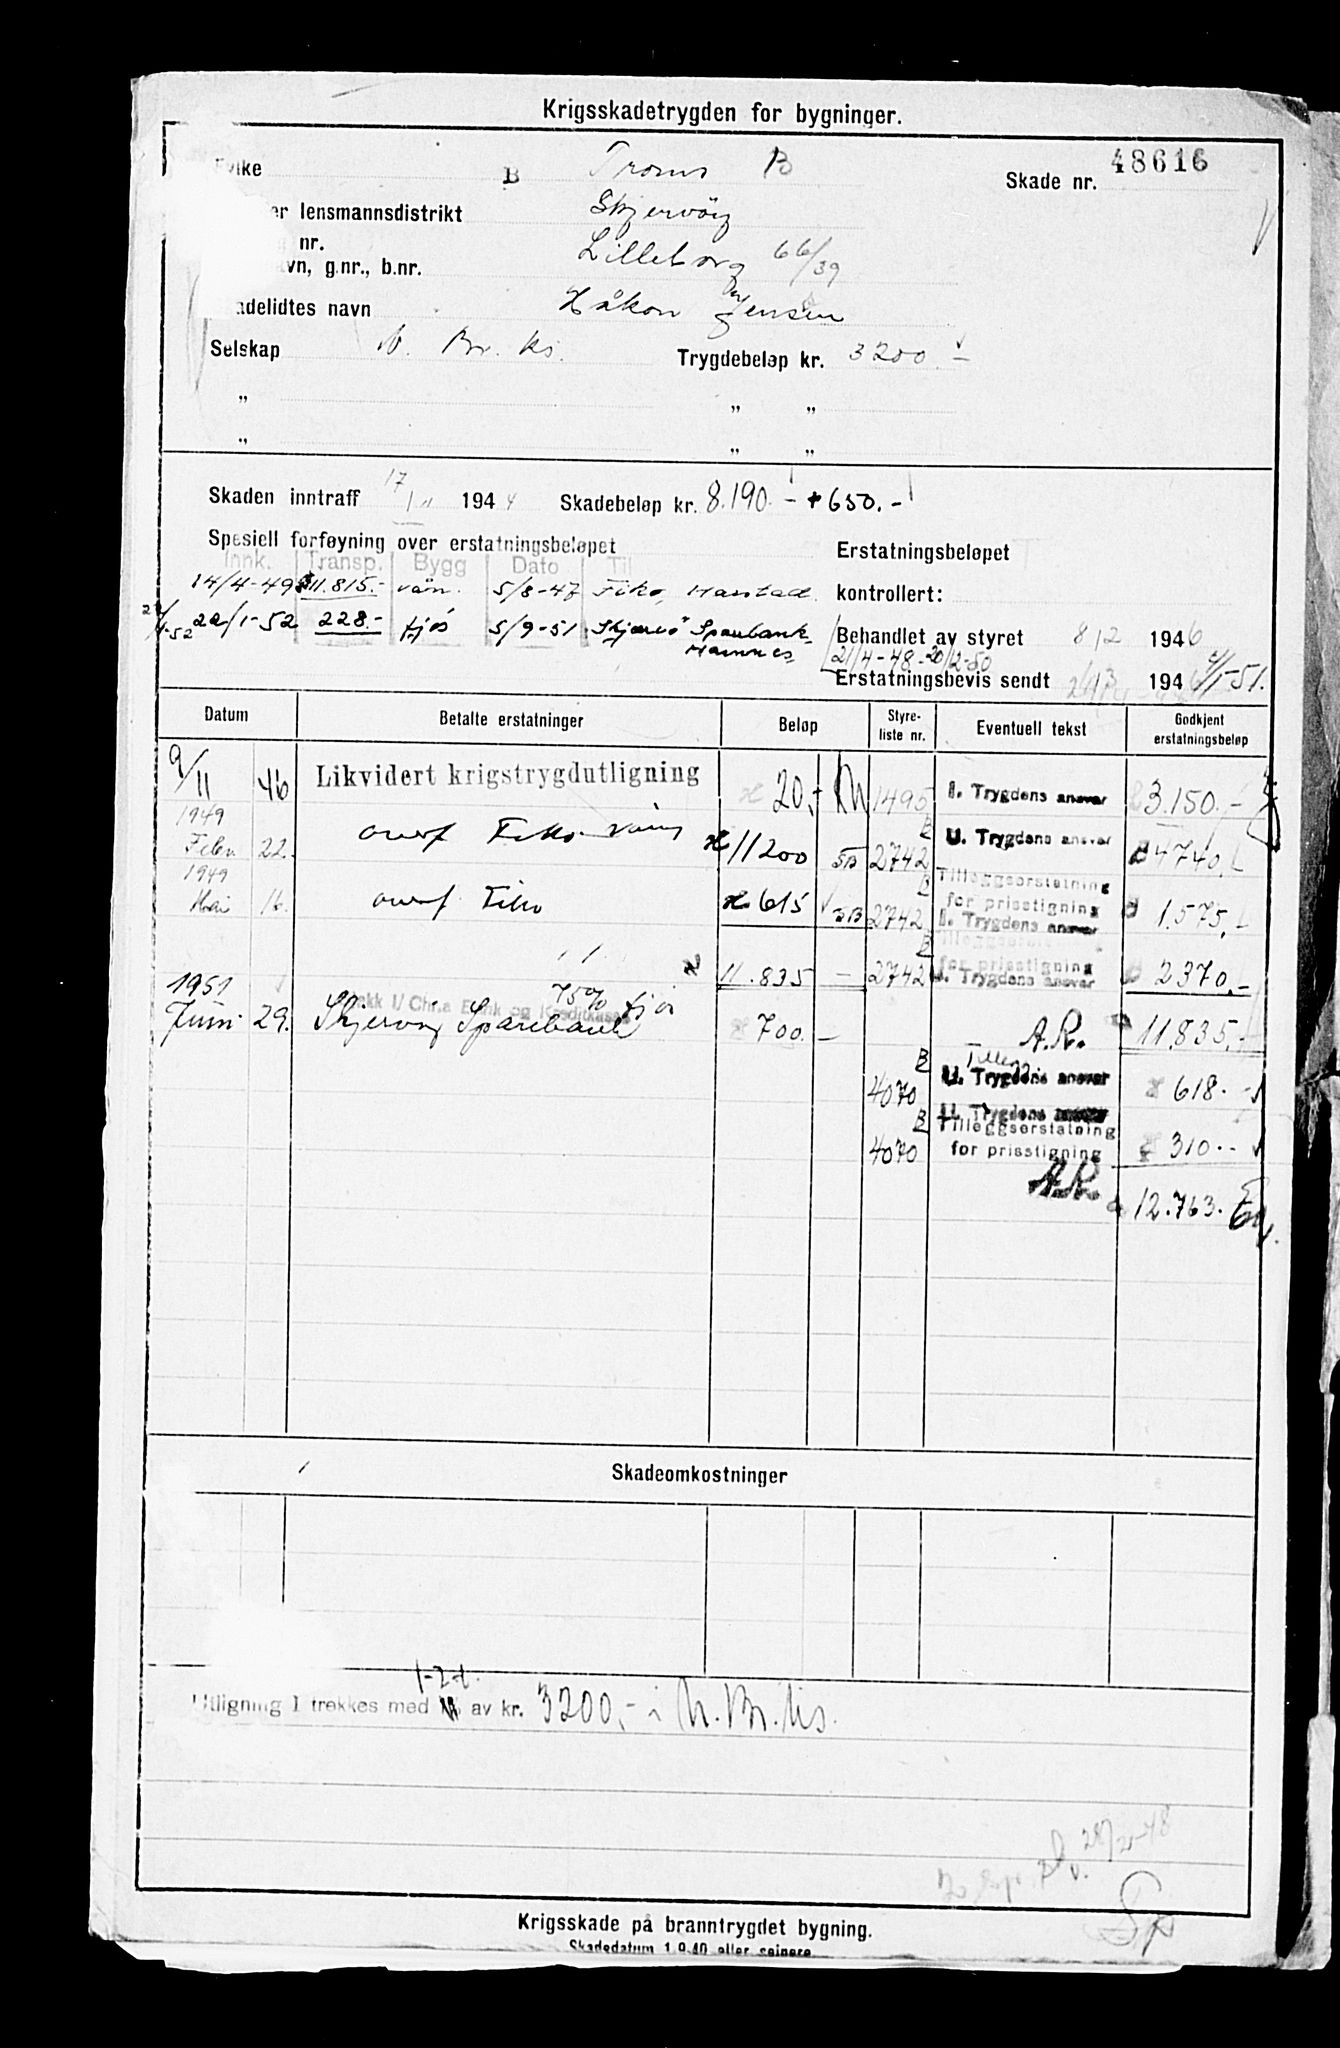 Krigsskadetrygden for bygninger.
Fylke B Troms B
Skade nr. 48616
lensmannsdistrikt Skjervöy
nr.
g.nr., b.nr. Lilleborg 66/39
navn Håkon Jensen
Selskap N. Br. ks. Trygdebeløp kr. 3200.-
" " "
" " "
Skaden inntraff 17/11 1944 Skadebeløp kr. 8.190.- + 650.-
Spesiell forføyning over erstatningsbeløpet
Erstatningsbeløpet
Innk. Transp. Bygg Dato Til
14/4-49 11.815.- vån. 5/8-47 Fiko, Harstad
kontrollert:
22/1-52 228.- fjös 5/9-51 Skjervö Sparebank
Hamnes
Behandlet av styret 8/2 1946
21/4-48-20/12-50
Erstatningsbevis sendt 1946 4/1-51.
Datum Betalte erstatninger Beløp Styre-liste nr. Eventuell tekst Godkjent erstatningsbeløp
9/11 46 Likvidert krigstrygdutligning 20,- 1495 I. Trygdens ansvar 3.150.-
1949
Febr 22. overf Fiko vån 11200 SB B 2742 U. Trygdens ansvar 4740.-
1949
Mai 16. overf Fiko 615 SB B 2742 Tilleggserstatning
for prisstigning
I. Trygdens ansvar 1.575,-
11.835 - B 2742 Tilleggserstatning
for prisstigning
U. Trygdens ansvar 2370.-
1951 75% fjös
Juni 29. Skjervöy Sparebank 700.- A.R. 11.835.-
B 4070 Tillegg
U. Trygdens ansvar 618.-
B 4070 U. Trygdens ansvar
Tilleggserstatning
for prisstigning 310.-
A.R. 12.763.
Skadeomkostninger
1-2-t.
Utligning I trekkes med av kr. 3200,- i N. Br. ks.
Krigsskade på branntrygdet bygning.
Skadedatum 1.9.40 eller seinere